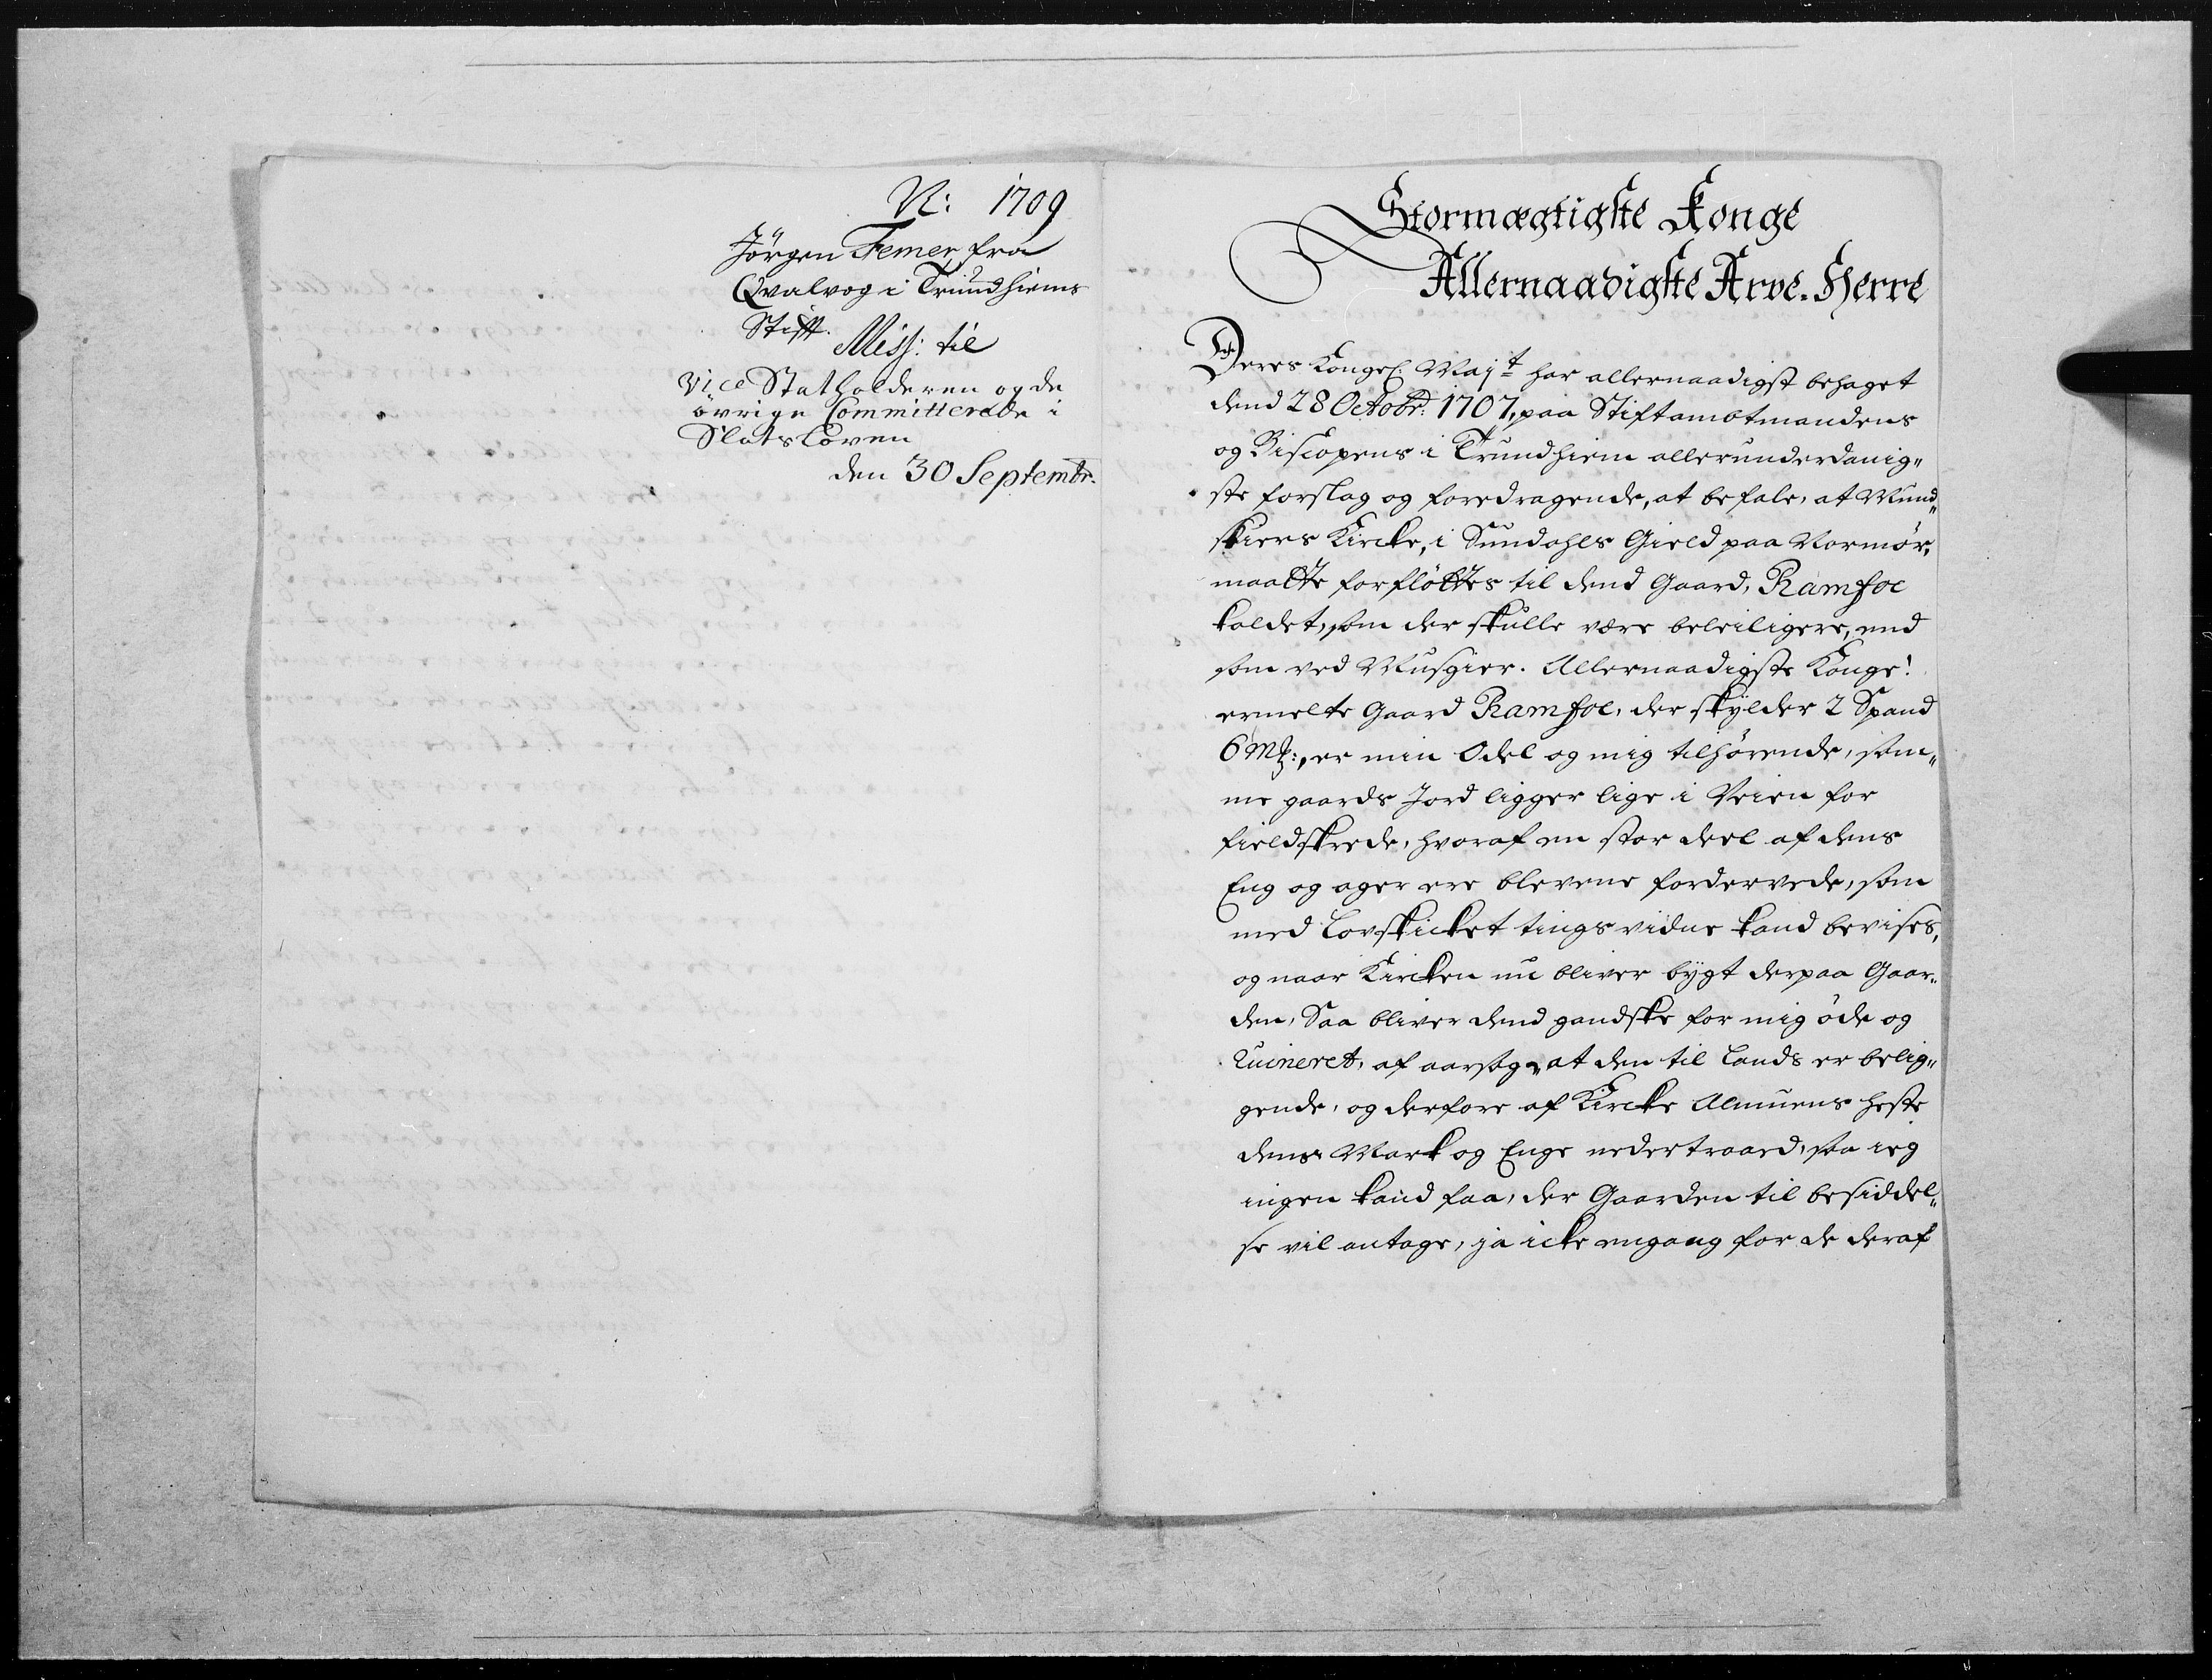 N: 1709
Jörgen Femer, fra
Qvalvog i Trundhiems
Stifft.
Miss: til
Vice Statholderen og de
övrige Committerede i
Slotsloven
den 30 Septembr.
Stormægtigste Konge
Allernaadigste Arve-Herre
Deres Kongel: Mayt har allernaadigst behaget
dend 28 Octobr: 1707, paa Stiftambtmandens
og Biscopens i Trundhiem allerunderdanig„
ste forslag og foredragende, at befale, at Mund„
skiers Kircke, i Sundahls Gield paa Normör,
maatte forflöttes til dend Gaard, Ramsoe
kaldet, som der skulle være beleiligere, end
som ved Musgier. Allernaadigste Konge!
ermelte Gaard Ramsoe, der skÿlder 2 Spand
6 Mk:, er min Odel og mig tilhörende, sam„
me gaards Jord ligger lige i Veien for
fieldskrede, hvoraf en stor deel af dens
Eng og ager ere blevene fordervede, som
med Lovskicket tings vidne kand bevises,
og naar Kircken nu bliver bÿgt derpaa Gaar„
den, Saa bliver dend gandske for mig öde og
Ruineret, af aarsag, at den til Lands er belig„
gende, og derfore af Kircke Almuens heste
dens Mark og Enge nedertraad, saa ieg
ingen kand faa, der Gaarden til besiddel„
se vil antage, ja icke engang for de deraf